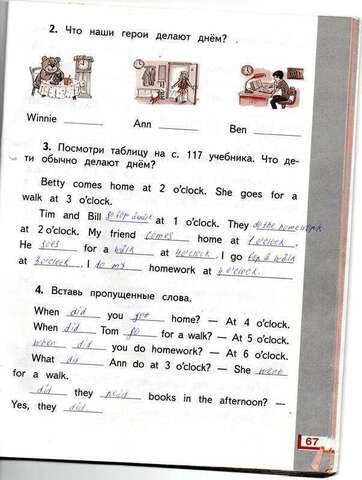 2. Что наши герои делают днём?
Winnie Ann Ben
3. Посмотри таблицу на с. 117 учебника. Что де-
ти обычно делают днём?
Betty comes home at 2 o'clock. She goes for a
walk at 3 o'clock.
Tim and Bill go for a walk at 1 o'clock. They do the homework
at 2 o'clock. My friend comes home at 1 o'clock.
He goes for a walk at 4 o'clock. I go for a walk
at 3 o'clock. I do my homework at 4 o'clock.
4. Вставь пропущенные слова.
When did you get home? — At 4 o'clock.
When did Tom go for a walk? — At 5 o'clock.
when did you do homework? — At 6 o'clock.
What did Ann do at 3 o'clock? — She went
for a walk.
did they read books in the afternoon? —
Yes, they did.
67